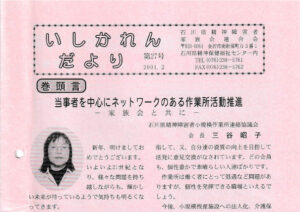 いしかれん
だより
第27号
2001. 2
石川県精神障害者
家族会連合会
石川県精神保健福祉センター内
TEL(076)238-5761
FAX(076)238-5762
巻頭言
当事者を中心にネットワークのある作業所活動推進
－家族会と共に－
石川県精神障害者小規模作業所連絡協議会
会長 三谷昭子
新年、明けましてお
めでとうございます。
いよいよ21世紀とな
り、様々な問題を持ち
越しながらも、輝かし
い未来が待っているようで気持ちも明るくなっ
てきます。
指して、又、自分達の資質の向上を目標して
活発に意見交流がなされています。どの会員
も、個性豊かで素晴らしい人達ばかりです。
作業所は働く者にとって沢山な問題があり
ますが、個性を発揮できる職場といえるで
しょう。
今後、小規模授産施設への法人化、介護保